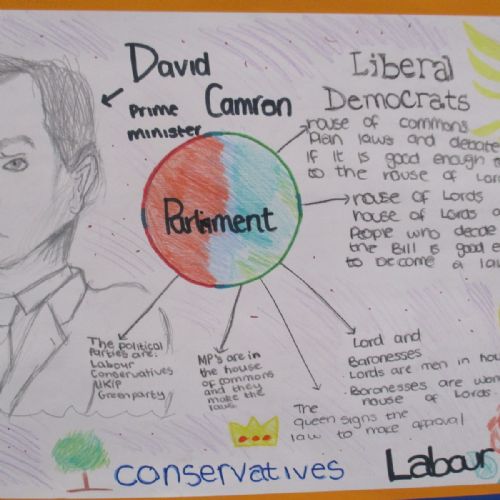 David
Camron
Prime
minister
Liberal
Democrats
House of commons
Plan laws and debate
if it is good enough
to the House of Lor
Parliment
House of Lords
House of Lords
People who decide
the Bill is good e
to become a la
The political
Parties are:
Labour
Conservatives
UKIP
Green party
MP's are in
the house
of commons
and they
make the
laws
The
queen signs the
law to make approval
Lord and
Baronesses
Lords are men in hou
Baronesses are wom
house of Lords
conservatives
Labour